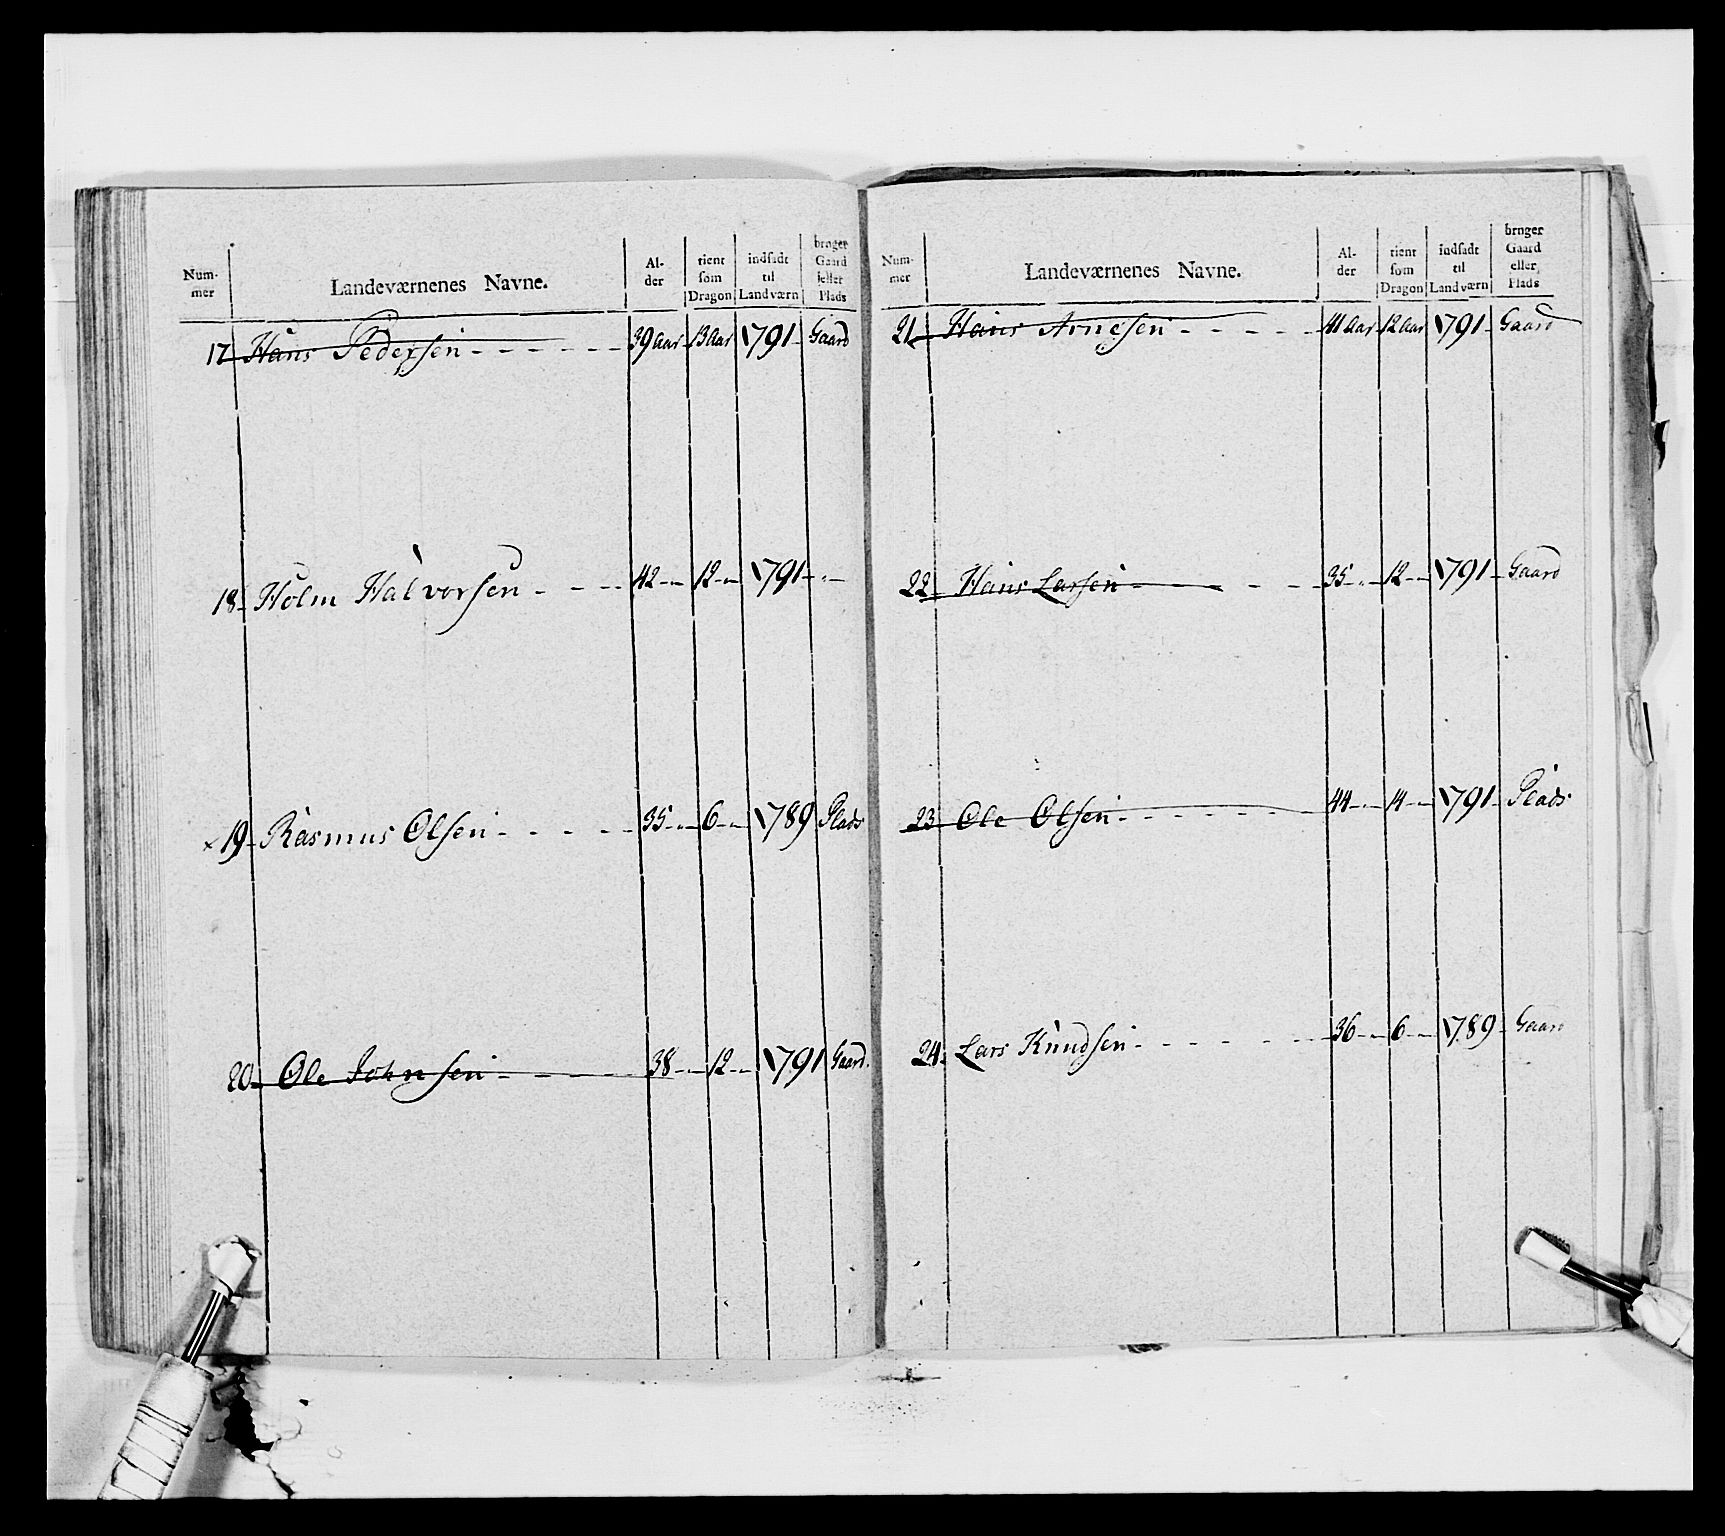 Num-
mer
Landeværnenes Navne.
Al-
der
tient
som
Dragon
indsadt
til
Landværn
bruger
Gaard
eller
Plads
17 Hans Pedersen - - - - - - 39 aar 13 aar 1791 - Gaard
18 - Holm Halvorsen - - - - 42 - " - 12 - " - 1791 - " -
× 19 - Rasmus Olsen - - - - - 35 - " - 6 - " - 1789 Plads
20 - Ole Johnsen - - - - 38 - " - 12 - " - 1791 Gaard.
Num-
mer
Landeværnenes Navne.
Al-
der
tient
som
Dragon
indsadt
til
Landværn
bruger
Gaard
eller
Plads
21 - Hans Arnesen - - - - - 41 aar 12 aar 1791 - Gaard
22 - Hans Larsen - - - - - 35 - " - 12 - " - 1791 - Gaard
23 Ole Olsen - - - - - - - 44 - " - 14 - " - 1791 - Plads
24 - Lars Knudsen - - - - - - 36 - " - 6 - " - 1789 - Gaard